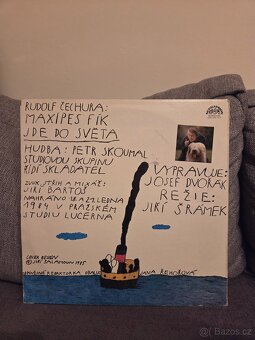 RUDOLF ČECHURA:
MAXIPES FÍK
JDE DO SVĚTA
HUDBA: PETR SKOUMAL
STUDIOVOU SKUPINU
ŘÍDÍ SKLADATEL
ZVUK, STŘIH A MIXÁŽ:
JIŘÍ BARTOŠ
NAHRÁNO 28. A 29. LEDNA
1984 V PRAŽSKÉM
STUDIU LUCERNA
VYPRAVUJE:
JOSEF DVOŘÁK
REŽIE:
JIŘÍ ŠRÁMEK
COVER DESIGN
© JIŘÍ ŠALAMOUN 1985
REDAKTORKA OBALU
JANA ŘEHOŘOVÁ
Bazoš.cz